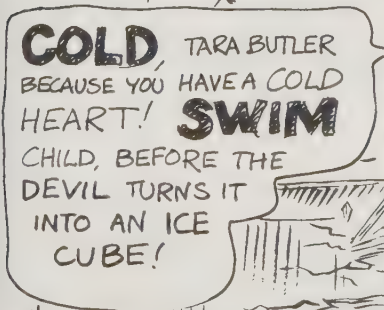 COLD, TARA BUTLER
BECAUSE YOU HAVE A COLD
HEART! SWIM
CHILD, BEFORE THE
DEVIL TURNS IT
INTO AN ICE
CUBE!